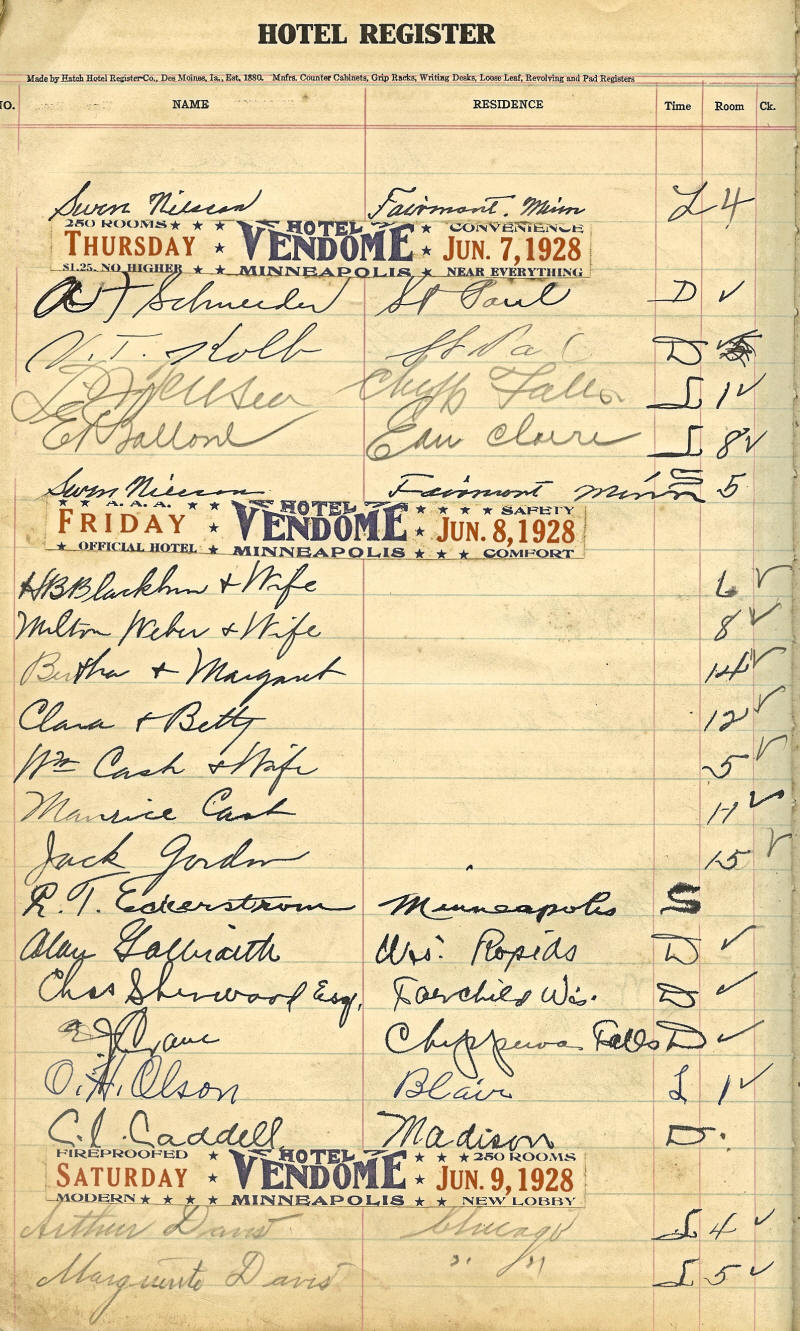 HOTEL REGISTER
Made by Hatch Hotel Register Co., Des Moines, Ia., Est. 1880. Mnfrs. Counter Cabinets, Grip Racks, Writing Desks, Loose Leaf, Revolving and Pad Registers
NO. NAME RESIDENCE Time Room Ck.
Swen Nielson Fairmont. Minn L 4
250 ROOMS HOTEL CONVENIENCE
THURSDAY VENDOME JUN. 7, 1928
$1.25. NO HIGHER MINNEAPOLIS NEAR EVERYTHING
Schneider St Paul D ✓
V. T. Kolb St Pa D
Jensen Chipp Falls L 1 ✓
Ballone Eau Claire L 8 ✓
Swen Nielson Fairmont Minn 5
A.A.A. HOTEL SAFETY
FRIDAY VENDOME JUN. 8, 1928
OFFICIAL HOTEL MINNEAPOLIS COMFORT
HB Blackburn + Wife 6 ✓
Milton Weber + Wife 8 ✓
Bertha + Margaret 14 ✓
Clara + Betty 12 ✓
Wm Cash + Wife 5 ✓
Maurice Cash 11 ✓
Jack Gordon 15 ✓
R. T. Eckerstrom Minneapolis S
Alan Galbraith Wis. Rapids D ✓
Chas Sherwood Esq. Fairchild Wis. D ✓
E J Crane Chippewa Falls D ✓
O. H. Olson Blair L 1 ✓
C. I. Caddell Madison D.
FIREPROOFED HOTEL 250 ROOMS
SATURDAY VENDOME JUN. 9, 1928
MODERN MINNEAPOLIS NEW LOBBY
Arthur Davis Chicago L 4 ✓
Marguerite Davis " " L 5 ✓